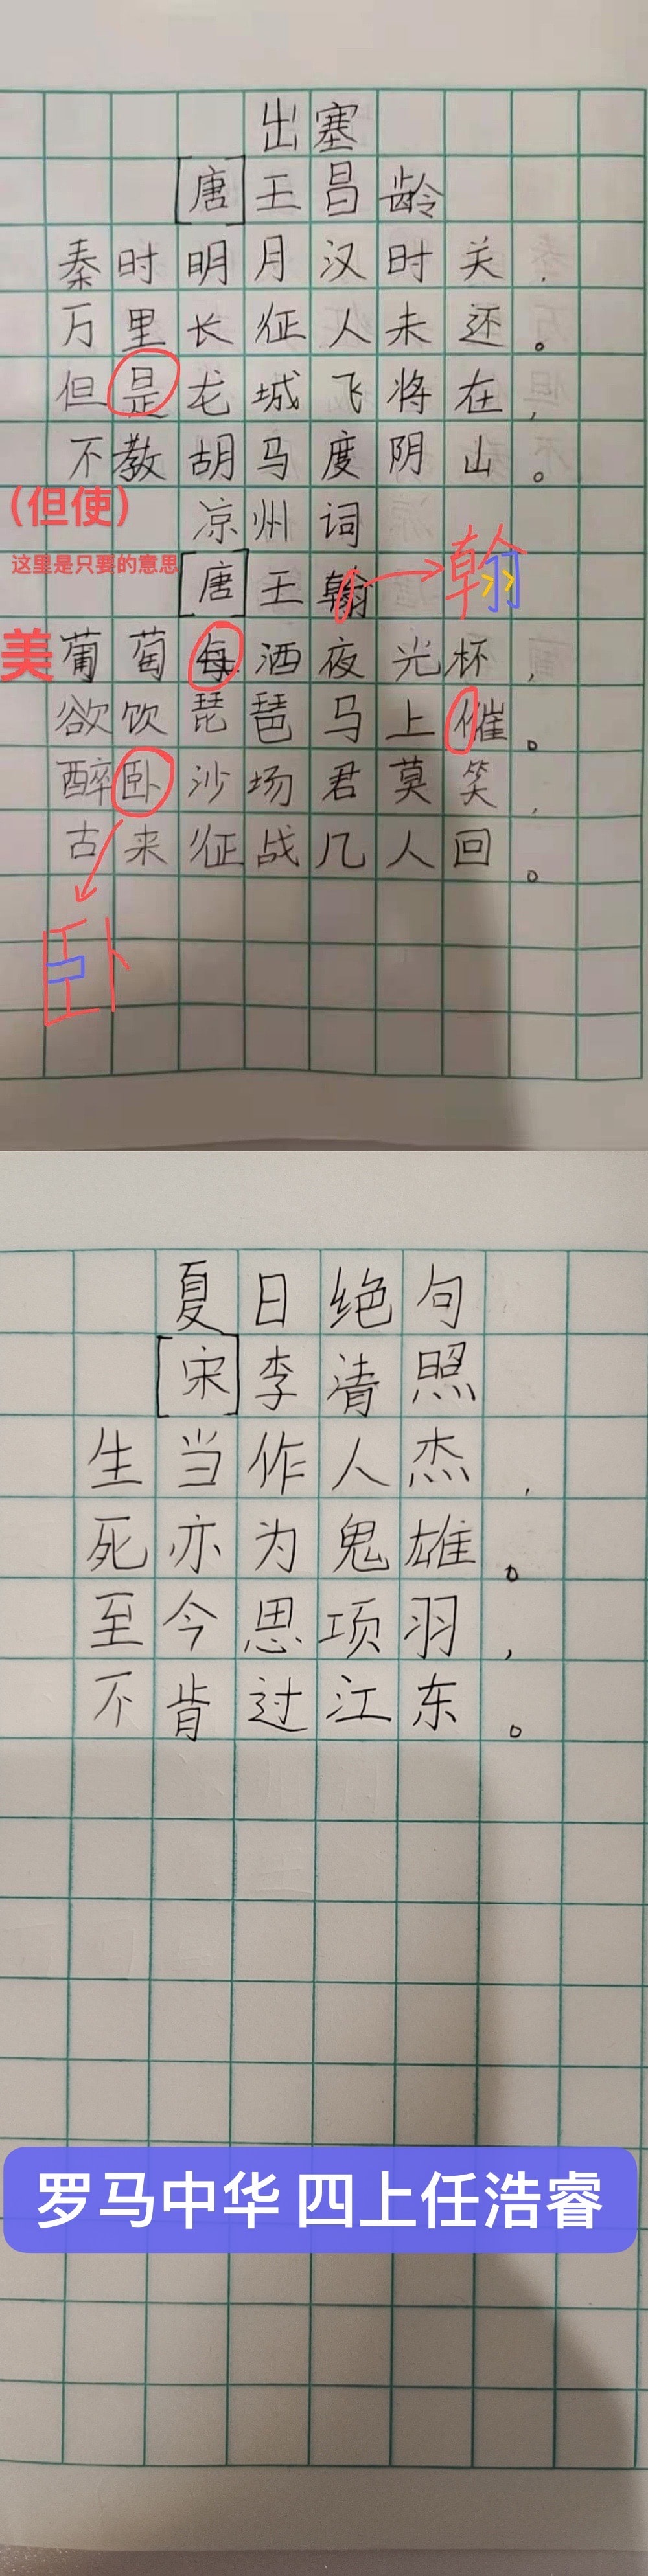 出塞
[唐]王昌龄
秦时明月汉时关，
万里长征人未还。
但是龙城飞将在，
不教胡马度阴山。
(但使)
凉州词
这里是只要的意思
[唐]王翰
翰
美
葡萄每酒夜光杯，
欲饮琵琶马上催。
醉卧沙场君莫笑，
古来征战几人回。
卧
夏日绝句
[宋]李清照
生当作人杰，
死亦为鬼雄。
至今思项羽，
不肯过江东。
罗马中华 四上任浩睿